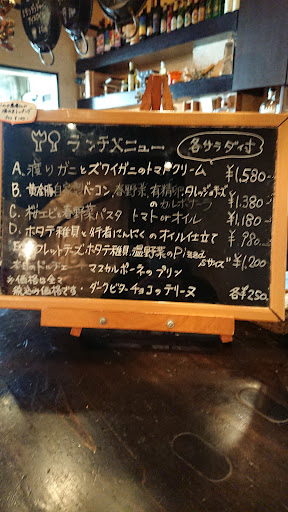 ランチメニュー 各サラダ付
A. 渡りガニとズワイガニのトマトクリーム ¥1,580-
B. 自家製ベーコン 春野菜 有精卵 チーズ
のカルボナーラ ¥1,380-
C. 桜エビと春野菜パスタ トマト or オイル ¥1,180-
D. ホタテ稚貝と行者にんにくのオイル仕立て ¥980-
E. フレッシュチーズ、ホタテ稚貝、春野菜のPizza Sサイズ ¥1,200
本日のドルチェ マスカルポーネのプリン
※価格は全て
税込の価格です・ダークビターチョコのテリーヌ 各¥250